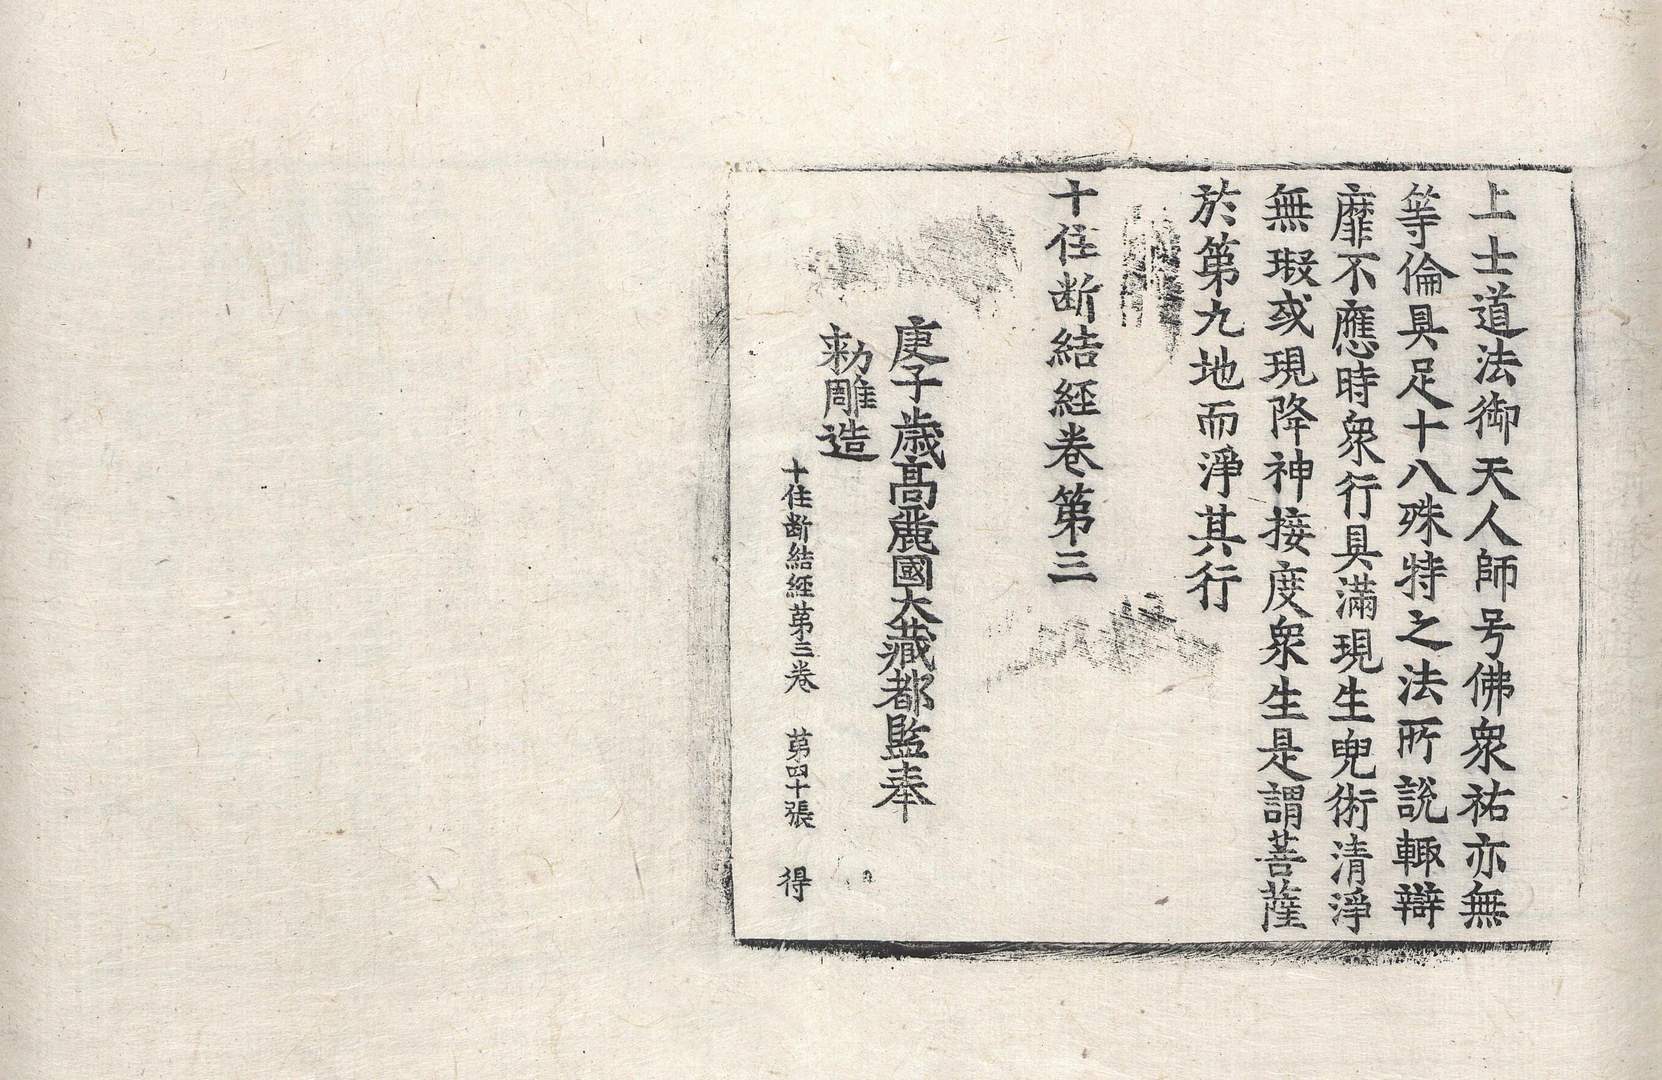 上士道法御天人師号佛衆祐亦無
等倫具足十八殊特之法所說輙辯
靡不應時衆行具滿現生兜術清淨
無瑕或現降神接度衆生是謂菩薩
於第九地而淨其行
十住断結經卷第三
庚子歲高麗國大藏都監奉
勑雕造
十住断結經第三卷　第四十張　得